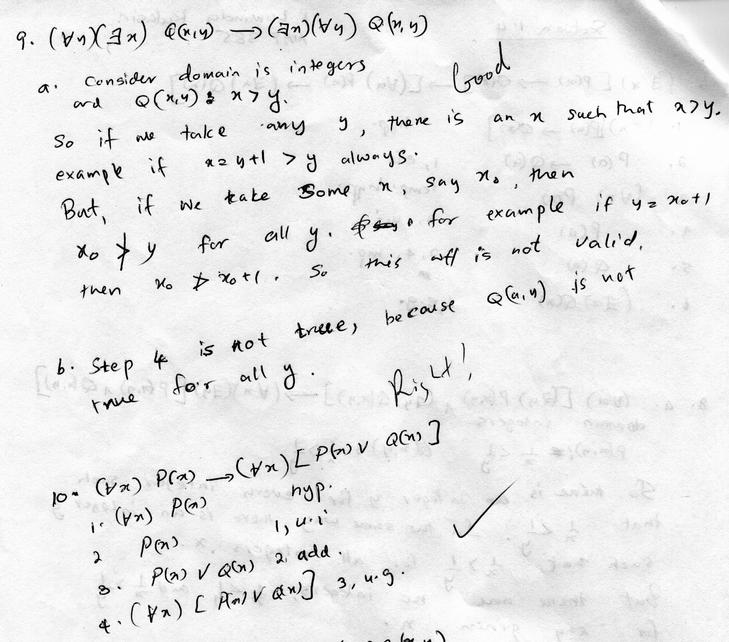 9. (∀y)(∃x) Q(x,y) → (∃x)(∀y) Q(x,y)
a. Consider domain is integers
and Q(x,y) : x > y.
Good
So if we take any y, there is an x such that x>y.
example if x = y+1 > y always.
But, if we take some x, say x₀, then
x₀ ≯ y for all y. for example if y = x₀+1
then x₀ ≯ x₀+1. So this wff is not valid.
b. Step 4 is not true, because Q(a,y) is not
true for all y.
Right!
10. (∀x) P(x) → (∀x) [P(x) ∨ Q(x)]
1. (∀x) P(x) hyp.
2 P(x) 1, u.i
3. P(x) ∨ Q(x) 2, add.
4. (∀x) [P(x) ∨ Q(x)] 3, u.g.